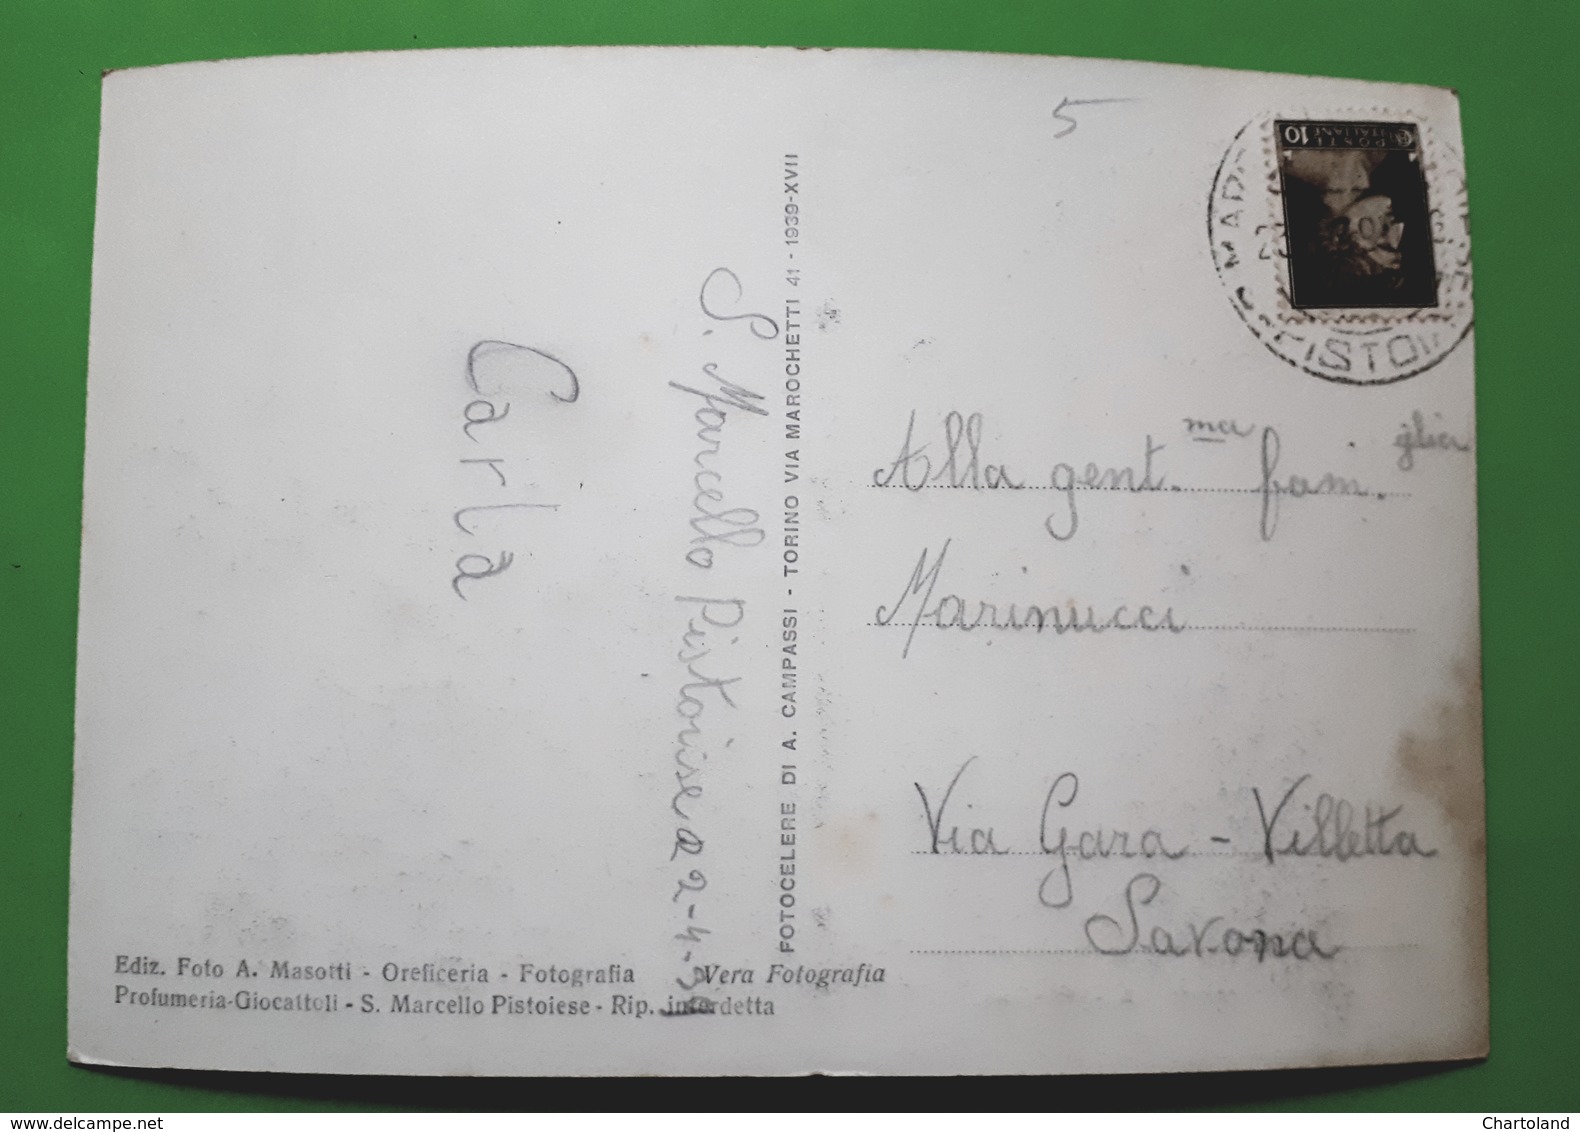 5
10
POSTE
ITALIANE
PISTOIA
Carla
S. Marcello Pistoiese 22-4-
FOTOCELERE DI A. CAMPASSI - TORINO VIA MAROCHETTI 41 - 1939-XVII
Alla gent.ma fam.glia
Marinucci
Via Gara - Villetta
Savona
Ediz. Foto A. Masotti - Oreficeria - Fotografia Vera Fotografia
Profumeria-Giocattoli - S. Marcello Pistoiese - Rip. interdetta
www.delcampe.net
Chartoland